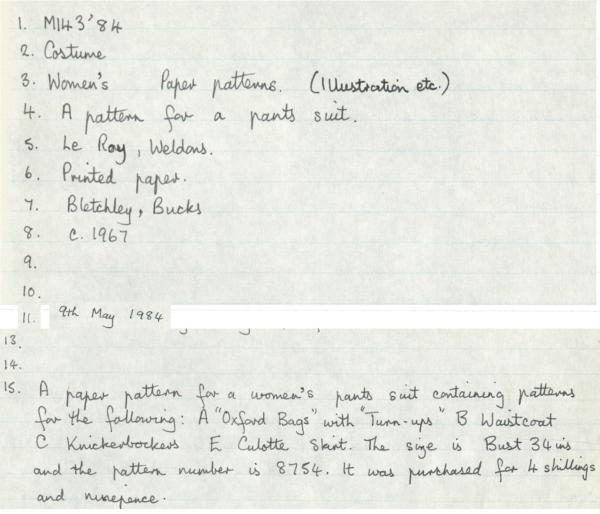 1. M143'84
2. Costume
3. Women's Paper patterns. (Illustration etc.)
4. A pattern for a pants suit.
5. Le Roy, Weldons.
6. Printed paper.
7. Bletchley, Bucks
8. c. 1967
9.
10.
11. 9th May 1984
13.
14.
15. A paper pattern for a women's pants suit containing patterns
for the following: A "Oxford Bags" with "Turn-ups" B Waistcoat
C Knickerbockers E Culotte Skirt. The size is Bust 34 ins
and the pattern number is 8754. It was purchased for 4 shillings
and ninepence.